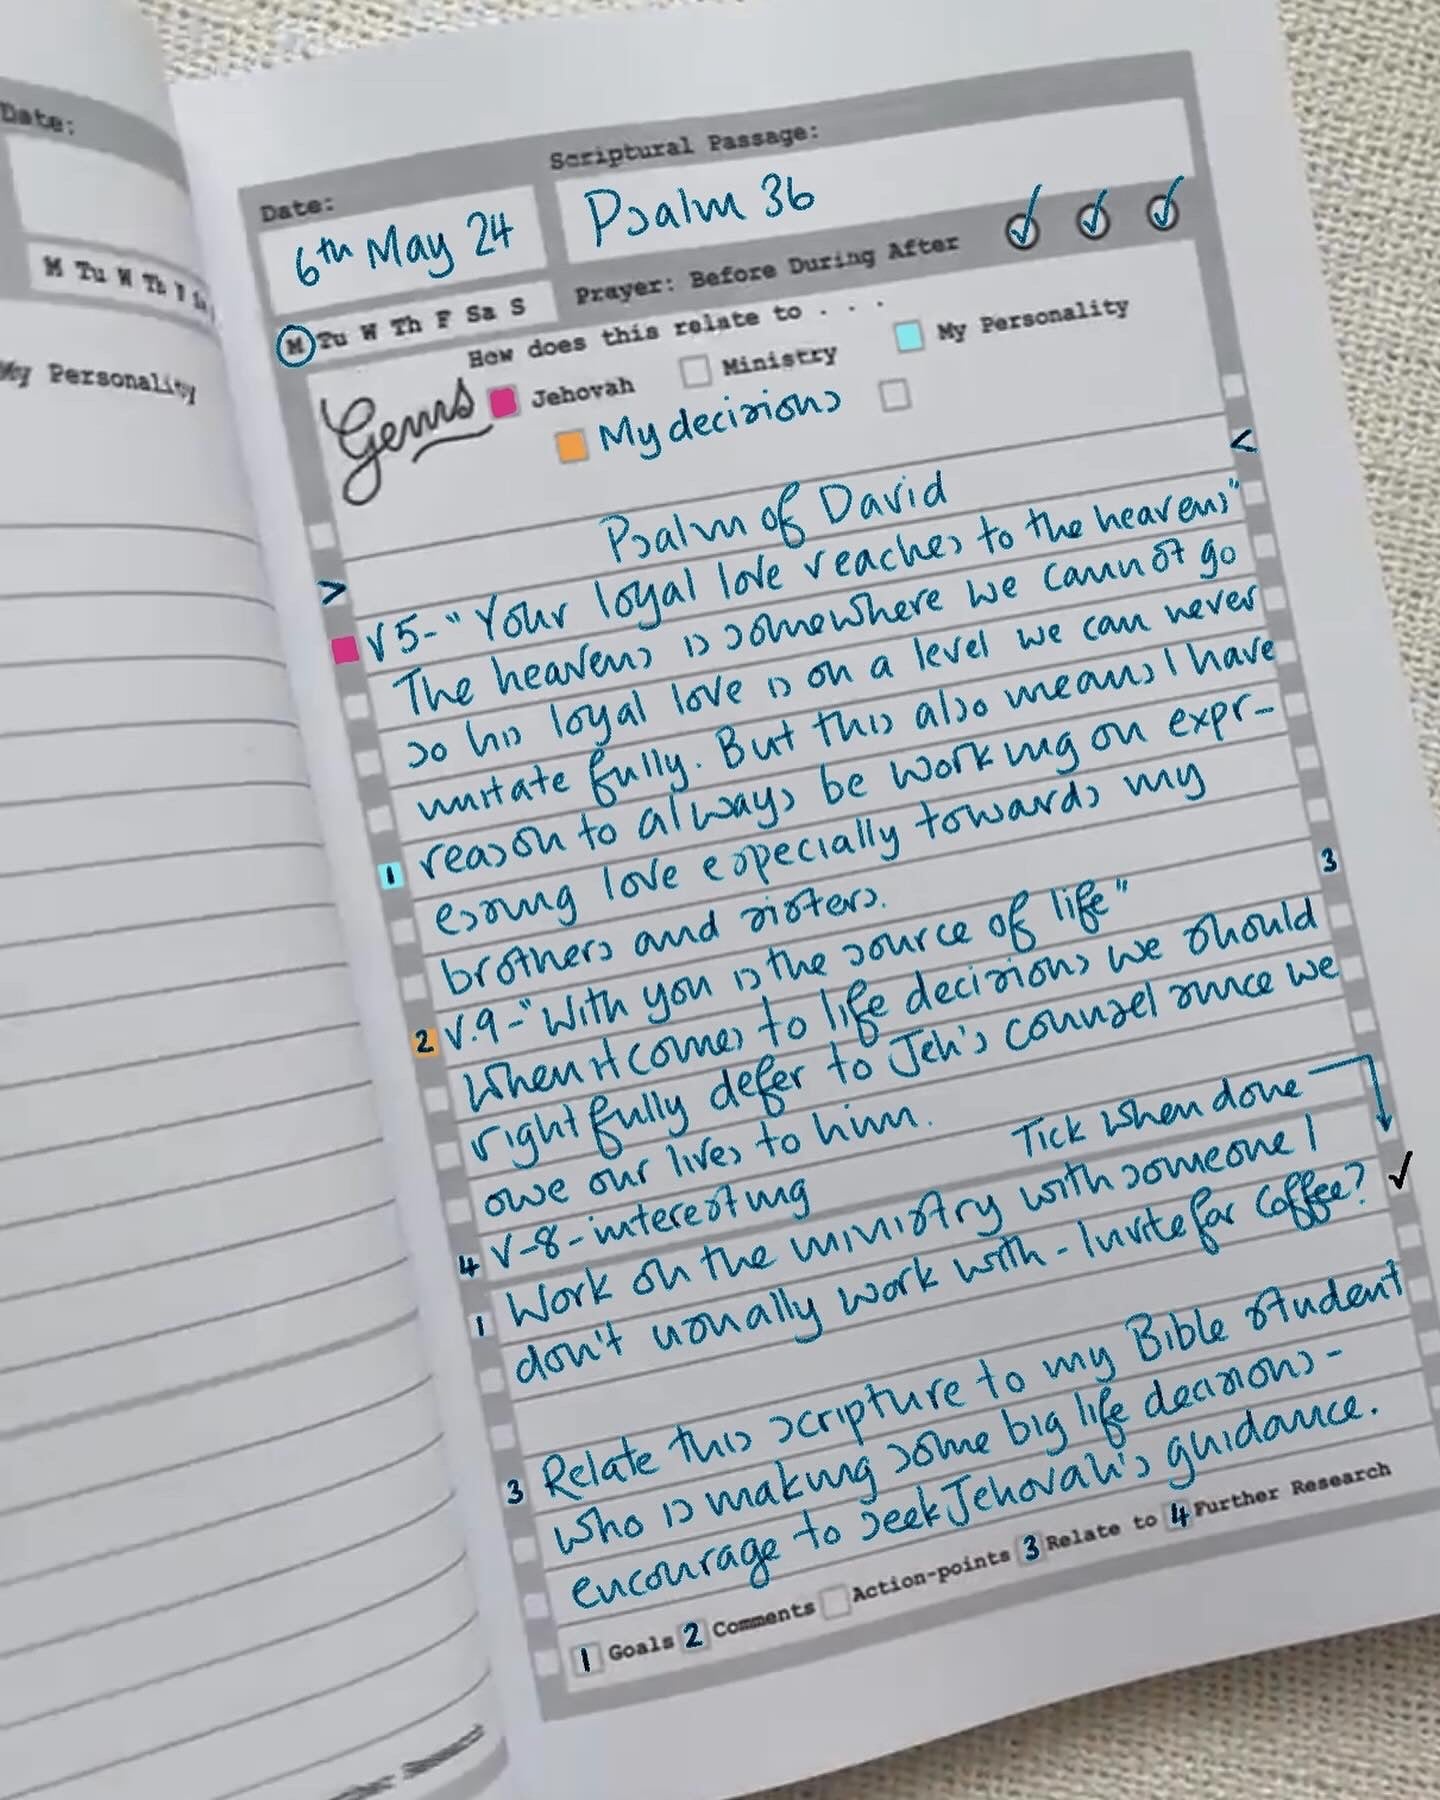 Date:
M Tu W Th F Sa
My Personality
Scriptural Passage:
Date:
Psalm 36
6th May 24
Prayer: Before During After
M Tu W Th F Sa S
How does this relate to . . .
Gems
Jehovah Ministry My Personality
My decisions
<
Psalm of David
>
V5-"Your loyal love reaches to the heavens"
The heavens is somewhere we cannot go
so his loyal love is on a level we can never
imitate fully. But this also means I have
1 reason to always be working on expr-
essing love especially towards my
brothers and sisters.
3
2 V.9-"With you is the source of life"
When it comes to life decisions we should
rightfully defer to Jeh's counsel since we
owe our lives to him.
Tick when done
4 V-8-interesting
1 Work on the ministry with someone I
don't usually work with - Invite for coffee? ✓
3 Relate this scripture to my Bible student
who is making some big life decisions -
encourage to seek Jehovah's guidance.
1 Goals 2 Comments Action-points 3 Relate to 4 Further Research